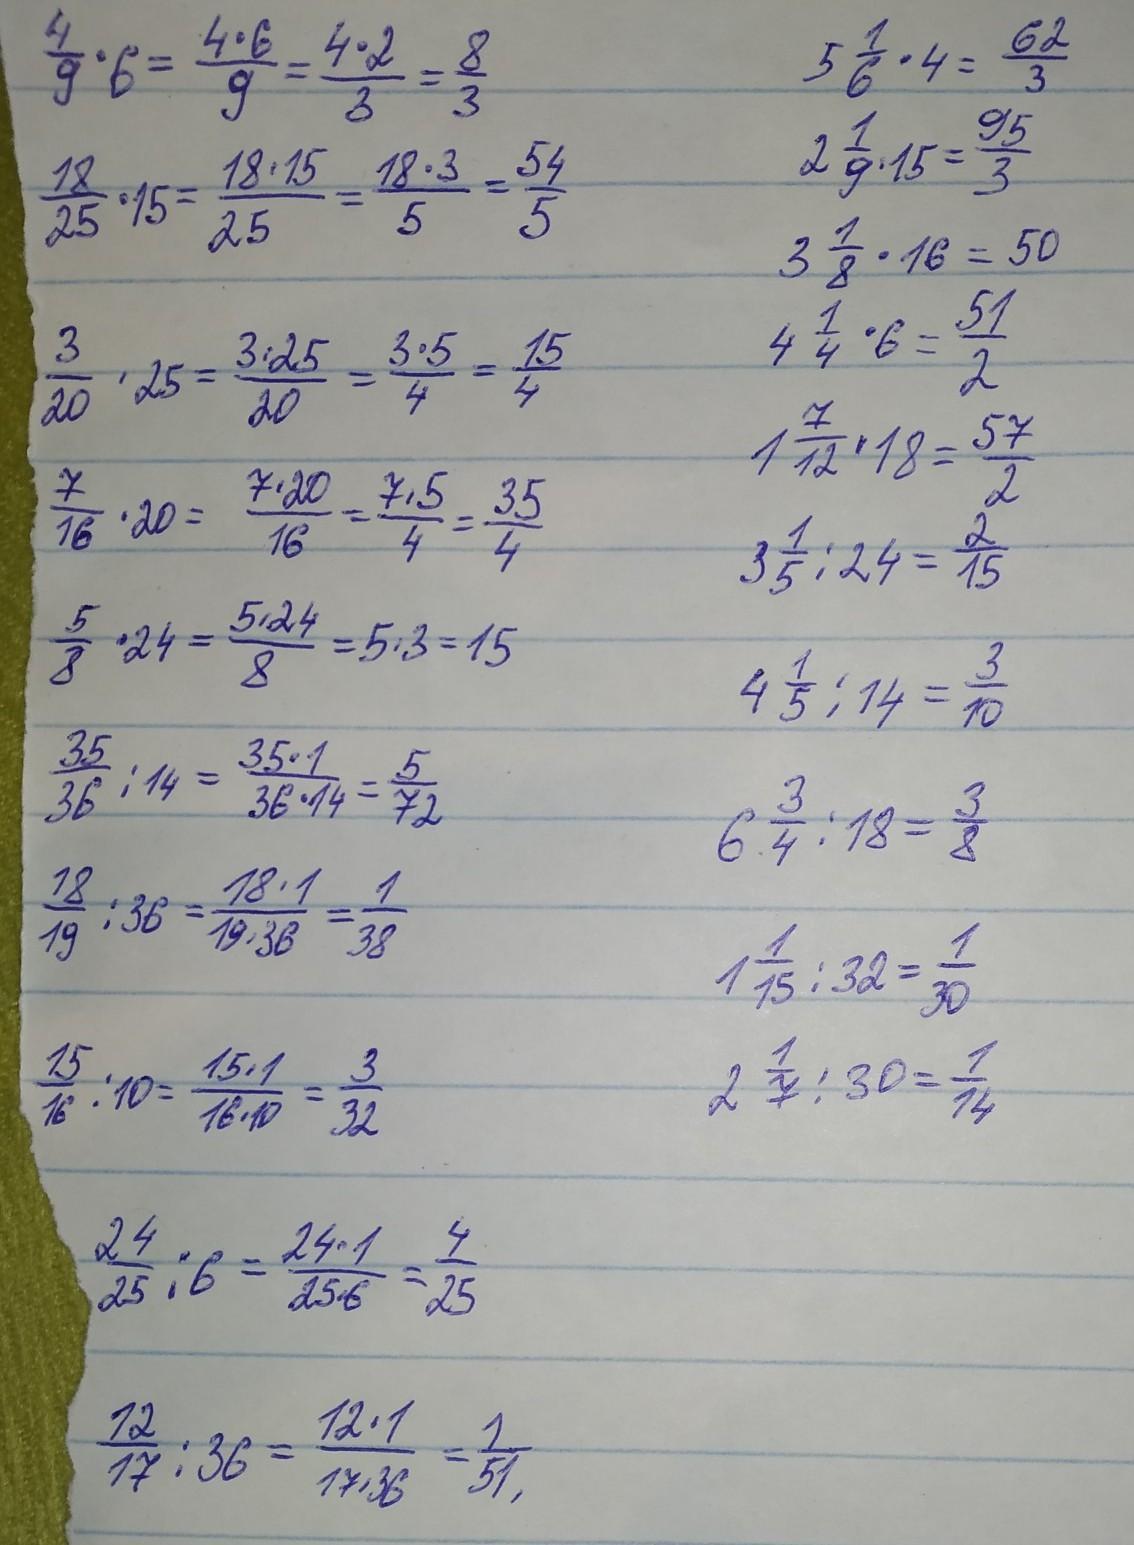 4/9 · 6 = 4·6/9 = 4·2/3 = 8/3
18/25 · 15 = 18·15/25 = 18·3/5 = 54/5
3/20 · 25 = 3·25/20 = 3·5/4 = 15/4
7/16 · 20 = 7·20/16 = 7·5/4 = 35/4
5/8 · 24 = 5·24/8 = 5·3 = 15
35/36 : 14 = 35·1/36·14 = 5/72
18/19 : 36 = 18·1/19·36 = 1/38
15/16 : 10 = 15·1/16·10 = 3/32
24/25 : 6 = 24·1/25·6 = 4/25
12/17 : 36 = 12·1/17·36 = 1/51,
5 1/6 · 4 = 62/3
2 1/9 · 15 = 95/3
3 1/8 · 16 = 50
4 1/4 · 6 = 51/2
1 7/12 · 18 = 57/2
3 1/5 : 24 = 2/15
4 1/5 : 14 = 3/10
6 3/4 : 18 = 3/8
1 1/15 : 32 = 1/30
2 1/7 : 30 = 1/14